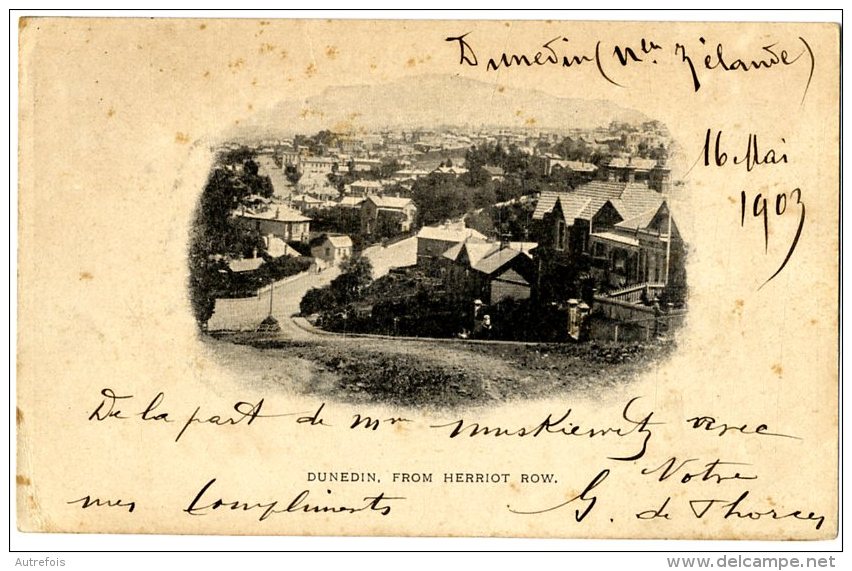 Dunedin (Nlle Zélande)
16 Mai
1903
De la part de mm muskiewitz avec
DUNEDIN, FROM HERRIOT ROW.
mes Compliments
G. de
Autrefois
www.delcampe.net